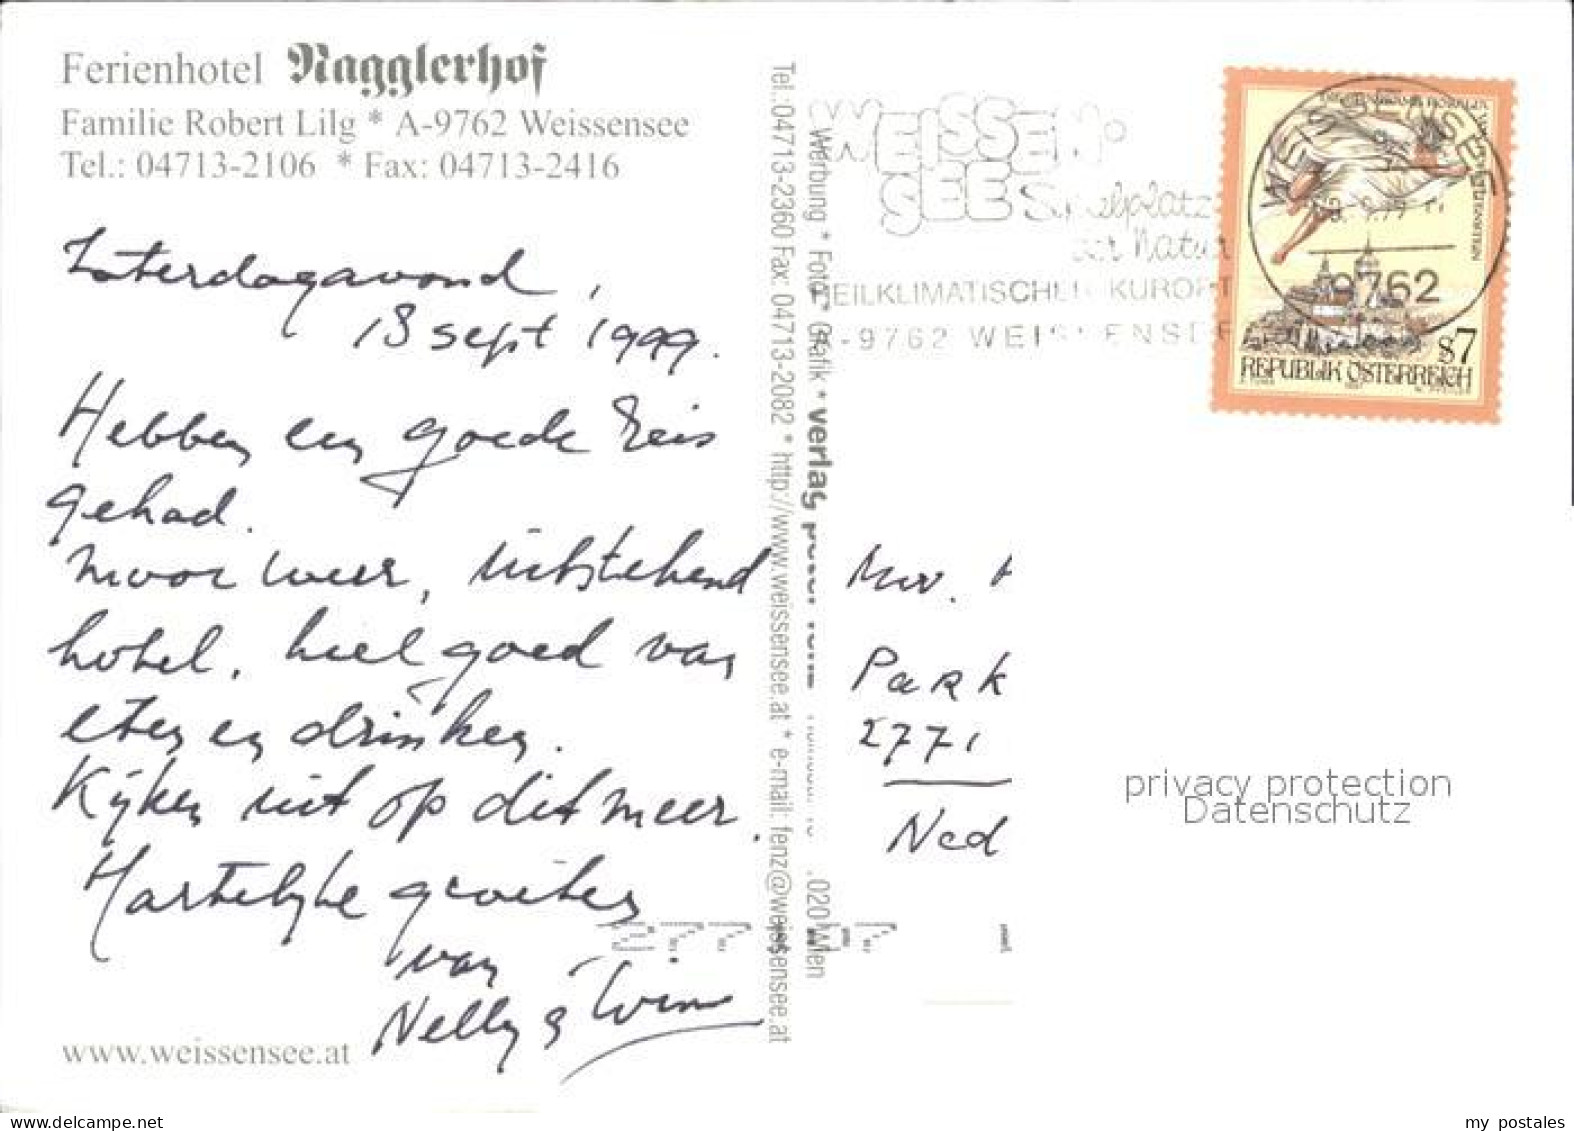 Ferienhotel Nagglerhof
Familie Robert Lilg * A-9762 Weissensee
Tel.: 04713-2106 * Fax: 04713-2416
Zaterdagavond,
18 sept 1999.
Hebben een goede reis
gehad.
Mooi weer, uitstekend
hotel, heel goed van
eten en drinken.
Kijken uit op dit meer.
Hartelijke groeten
van
Nelly & Wim
www.weissensee.at
Tel.:04713-2360 Fax: 04713-2082 * http://www.weissensee.at * e-mail: fenz@weissensee.at
Werbung * Foto * Grafik * verlag
.020 Wien
WEISSEN-
SEE Spielplatz
der Natur
HEILKLIMATISCHER KURORT
A-9762 WEISSENSEE
WEISSENSEE
9762
s7
REPUBLIK ÖSTERREICH
Mw.
Park
2771
Ned
privacy protection
Datenschutz
my postales